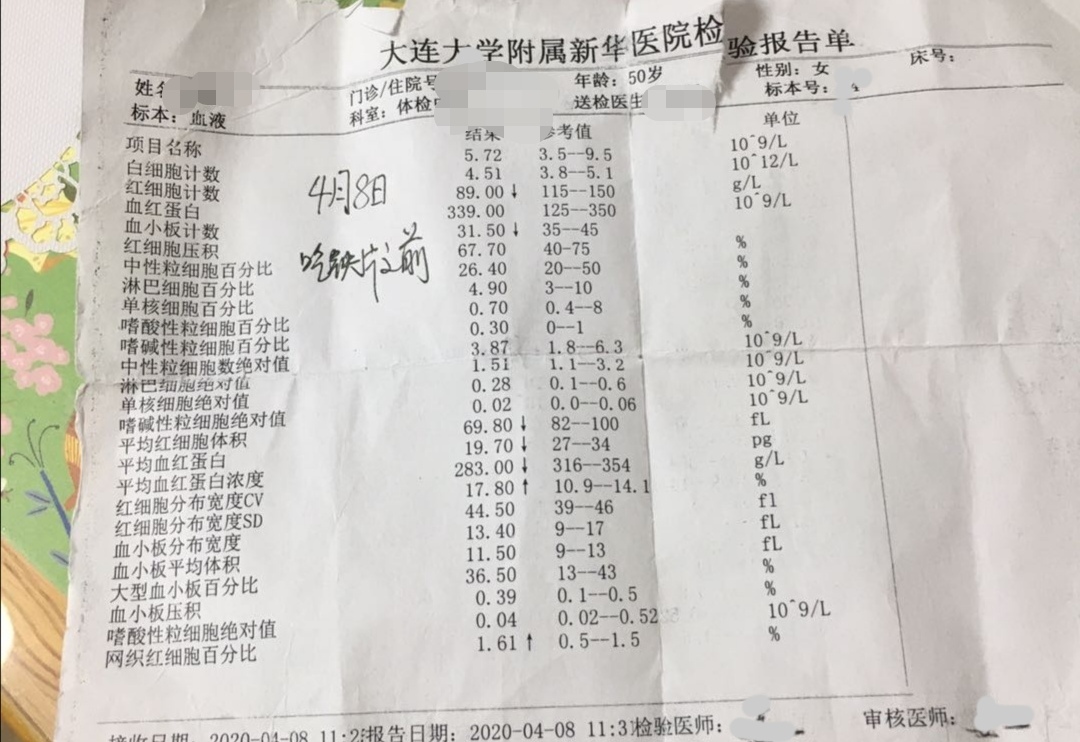 大连大学附属新华医院检验报告单
姓名 门诊/住院号 年龄: 50岁 性别: 女 床号:
标本: 血液 科室: 体检 送检医生 标本号:
项目名称 结果 参考值 单位
白细胞计数 5.72 3.5--9.5 10^9/L
红细胞计数 4.51 3.8--5.1 10^12/L
血红蛋白 89.00↓ 115--150 g/L
血小板计数 339.00 125--350 10^9/L
红细胞压积 31.50↓ 35--45
中性粒细胞百分比 67.70 40-75 %
淋巴细胞百分比 26.40 20--50 %
单核细胞百分比 4.90 3--10 %
嗜酸性粒细胞百分比 0.70 0.4--8 %
嗜碱性粒细胞百分比 0.30 0--1 %
中性粒细胞数绝对值 3.87 1.8--6.3 10^9/L
淋巴细胞绝对值 1.51 1.1--3.2 10^9/L
单核细胞绝对值 0.28 0.1--0.6 10^9/L
嗜碱性粒细胞绝对值 0.02 0.0--0.06 10^9/L
平均红细胞体积 69.80↓ 82--100 fL
平均血红蛋白 19.70↓ 27--34 pg
平均血红蛋白浓度 283.00↓ 316--354 g/L
红细胞分布宽度CV 17.80↑ 10.9--14.1 %
红细胞分布宽度SD 44.50 39--46 fl
血小板分布宽度 13.40 9--17 fL
血小板平均体积 11.50 9--13 fL
大型血小板百分比 36.50 13--43 %
血小板压积 0.39 0.1--0.5 %
嗜酸性粒细胞绝对值 0.04 0.02--0.52 10^9/L
网织红细胞百分比 1.61↑ 0.5--1.5 %
4月8日
吃铁片之前
接收日期: 2020-04-08 11:2 报告日期: 2020-04-08 11:3 检验医师: 审核医师: